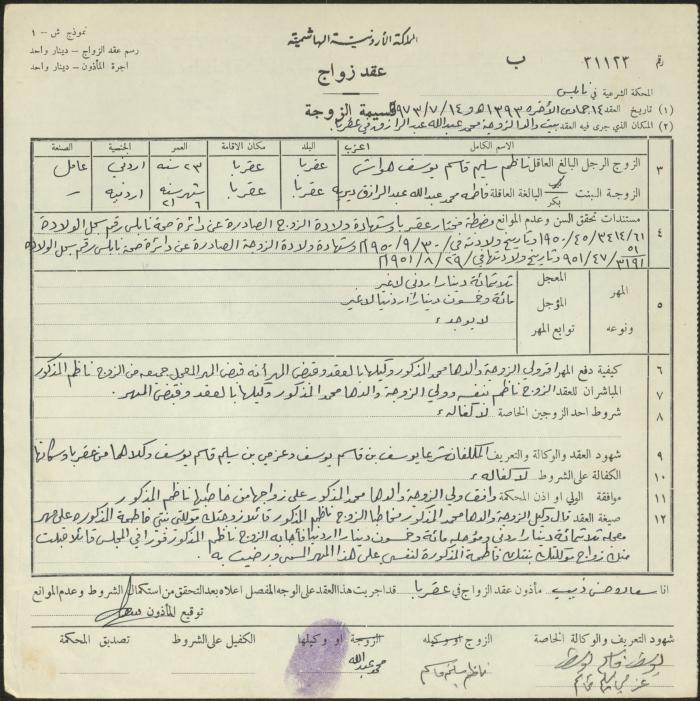 نموذج ش - ١
رسم عقد الزواج - دينار واحد
اجرة المأذون - دينار واحد
المملكة الأردنية الهاشمية
رقم ٣١١٢٣ ب
عقد زواج
المحكمة الشرعية في نابلس
قسيمة الزوجة
(١) تاريخ العقد ١٤ جمادى الآخرة ١٣٩٣ هـ و ١٤/٧/٩٧٣
(٢) المكان الذي جرى فيه العقد بيت والد الزوجة محمد عبدالله عبد الرازق في عقربا
الاسم الكامل اعزب البلد مكان الاقامة العمر الجنسية الصنعة
٣ الزوج الرجل البالغ العاقل ناظم سليم قاسم يوسف عقربا عقربا ٢٣ سنه اردني عامل
الزوجة البنت بكر البالغة العاقلة فاطمه محمد عبدالله عبد الرازق عقربا عقربا شهر سنه ٦ ٢١ اردنيه -
٤ مستندات تحقق السن وعدم الموانع مختار عقربا وشهادة ولادة الزوج الصادرة عن دائرة صحة نابلس رقم سجل الولادة
وتاريخ ولادته في ٣٠/٩/٩٥٠ وشهادة ولادة الزوجة الصادرة عن دائرة صحة نابلس رقم سجل الولادة
وتاريخ ولادتها في ٢٩/٨/٩٥١
٥ المهر ونوعه
المعجل ثلاثمائة دينار اردني لا غير
المؤجل مائة وخمسون دينار اردنيا لا غير
توابع المهر لا يوجد
٦ كيفية دفع المهر اقر ولي الزوجة والدها محمد المذكور وكيلها بالعقد وقبض المهر أنه قبض المهر المعجل جميعه من الزوج ناظم المذكور
٧ المباشران للعقد الزوج ناظم بنفسه وولي الزوجة والدها محمد المذكور وكيلها بالعقد وقبض المهر
٨ شروط احد الزوجين الخاصة لا كفاله
٩ شهود العقد والوكالة والتعريف المكلفان شرعا يوسف بن قاسم يوسف وعزمي بن سليم قاسم يوسف وكلاهما من عقربا وسكانها
١٠ الكفالة على الشروط لا كفاله
١١ موافقة الولي او اذن المحكمة وافق ولي الزوجة والدها محمد المذكور على زواجها من خاطبها ناظم المذكور
١٢ صيغة العقد قال وكيل الزوجة والدها محمد المذكور مخاطبا الزوج ناظم المذكور قائلا زوجتك موكلتي بنتي فاطمة المذكوره على مهر
معجله ثلاثمائة دينار اردني ومؤجله مائة وخمسون دينار اردنيا فأجابه الزوج ناظم المذكور فورا في المجلس قائلا قبلت
منك زواج موكلتك بنتك فاطمة المذكورة لنفسي على هذا المهر المسمى ورضيت به
انا مأذون عقد الزواج في عقربا قد اجريت هذا العقد على الوجه المفصل اعلاه بعد التحقق من استكمال الشروط وعدم الموانع
توقيع المأذون
شهود التعريف والوكالة الخاصة الزوج او وكيله الزوجة او وكيلها الكفيل على الشروط تصديق المحكمة
يوسف قاسم يوسف ناظم سليم قاسم محمد عبدالله
عزمي سليم قاسم